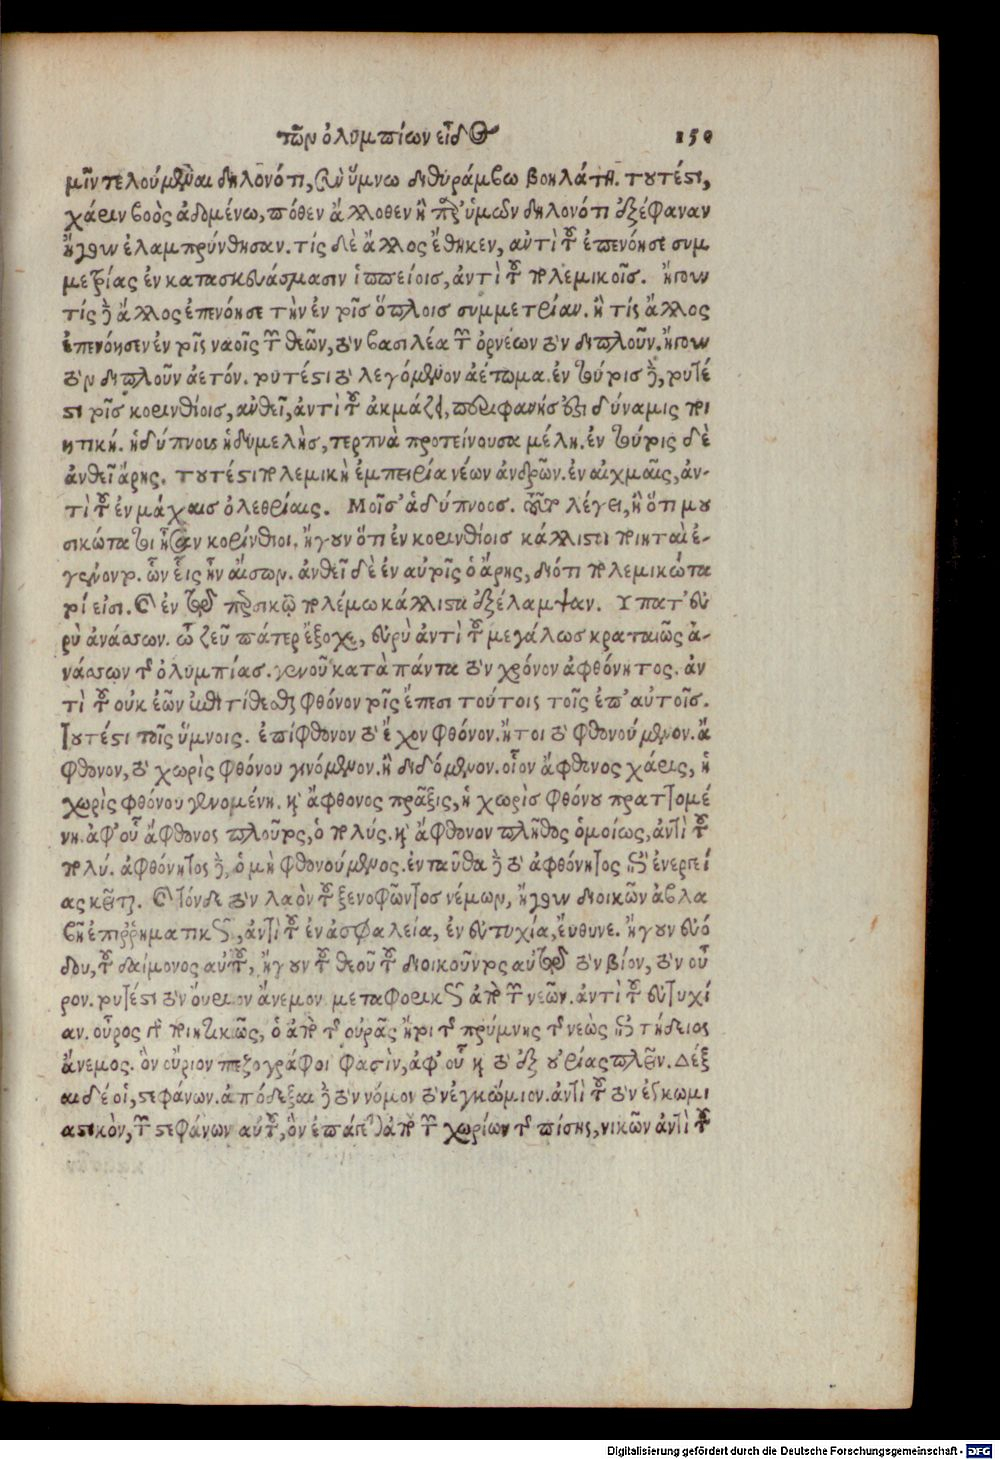 τῶν ὀλυμπίων εἶδος 150
μῖν τελούμεναι δηλονότι, σὺν ὕμνω διθυράμβω βοηλάτη. τουτέστι,
χάριν βοὸς ἀδομένω, πόθεν ἄλλοθεν ἢ παρ' ὑμῶν δηλονότι ἐξέφαναν
ἤγουν ἐλαμπρύνθησαν. τίς δὲ ἄλλος ἔθηκεν, αὐτὶ τοῦ ἐπενόησε συμ
μετρίας ἐν κατασκευάσμασιν ἱππείοις, ἀντὶ τοῦ πολεμικοῖς. ἤγουν
τίς δὲ ἄλλος ἐπενόησε τὴν ἐν τοῖς ὅπλοις συμμετρίαν. ἢ τίς ἄλλος
ἐπενόησεν ἐν τοῖς ναοῖς τῶν θεῶν, τὸν βασιλέα τῶν ὀρνέων τὸν διπλοῦν. ἤγουν
τὸν διπλοῦν ἀετόν. τουτέστι τὸ λεγόμενον ἀέτωμα. ἐν τούτοις δὲ, τουτέ
στι τοῖς κορινθίοις, ἀνθεῖ, ἀντὶ τοῦ ἀκμάζει, περιφανής ἐστι δύναμις ποι
ητική. ἡδύπνους ἡδυμελὴς, τερπνὰ προτείνουσα μέλη. ἐν τούτοις δὲ
ἀνθεῖ ἄρης. τουτέστι πολεμικὴ ἐμπειρία νέων ἀνδρῶν. ἐν αἰχμαῖς, ἀν-
τὶ τοῦ ἐν μάχαις ὀλεθρίαις. Μοῖσ' ἁδύπνοος. τοῦτο λέγει, ἢ ὅτι μου
σικώτατοι ἦσαν κορίνθιοι. ἤγουν ὅτι ἐν κορινθίοις κάλλιστοι ποιηταὶ ἐ-
γένοντο. ὧν εἷς ἦν αἴσων. ἀνθεῖ δὲ ἐν αὐτοῖς ὁ ἄρης, διότι πολεμικώτα
τοί εἰσι. καὶ ἐν τῷ περσικῷ πολέμω κάλλιστα ἐξέλαμψαν. Υπατ' εὐ
ρὺ ἀνάσσων. ὦ ζεῦ πάτερ ἔξοχε, εὐρὺ ἀντὶ τοῦ μεγάλως κραταιῶς ἀ-
νάσσων τῆς ὀλυμπίας. γενοῦ κατὰ πάντα τὸν χρόνον ἀφθόνητος. ἀν
τὶ τοῦ οὐκ ἐῶν ἐπιτίθεσθαι φθόνον τοῖς ἔπεσι τούτοις τοῖς ἐπ' αὐτοῖς.
Τουτέστι τοῖς ὕμνοις. ἐπίφθονον τὸ ἔχον φθόνον. ἤτοι τὸ φθονούμενον. ἄ
φθονον, τὸ χωρὶς φθόνου γινόμενον. ἢ διδόμενον. οἷον ἄφθονος χάρις, ἡ
χωρὶς φθόνου γενομένη. καὶ ἄφθονος πρᾶξις, ἡ χωρὶς φθόνου πραττομέ
νη. ἀφ' οὗ ἄφθονος πλοῦτος, ὁ πολύς. καὶ ἄφθονον πλῆθος ὁμοίως, ἀντὶ τοῦ
πολύ. ἀφθόνητος δὲ, ὁ μὴ φθονούμενος. ἐνταῦθα δὲ τὸ ἀφθόνητος ἐπὶ ἐνεργεί
ας κεῖται. καὶ τόνδε τὸν λαὸν τοῦ ξενοφῶντος νέμων, ἤγουν διοικῶν ἀβλα
βῆ ἐπιῤῥηματικῶς, ἀντὶ τοῦ ἐν ἀσφαλεία, ἐν εὐτυχία, εὔθυνε. ἤγουν εὐό
δου, τοῦ δαίμονος αὐτοῦ, ἤγουν τοῦ θεοῦ τοῦ διοικοῦντος αὐτῷ τὸν βίον, τὸν οὖ
ρον. τουτέστι τὸν οὔριον ἄνεμον μεταφορικῶς ἀπὸ τῶν νεῶν. ἀντὶ τοῦ εὐτυχί
αν. οὖρος δὲ ποιητικῶς, ὁ ἀπὸ τῆς οὐρᾶς ἤτοι τῆς πρύμνης τῆς νεὼς ἐπιτήδειος
ἄνεμος. ὃν οὔριον πεζογράφοι φασὶν, ἀφ' οὗ καὶ τὸ ἐξ οὐρίας πλεῖν. Δέξ
αι δέ οἱ, στεφάνων. ἀπόδεξαι δὲ τὸν νόμον τὸν ἐγκώμιον. ἀντὶ τοῦ τὸν ἐγκωμι
αστικὸν, τῶν στεφάνων αὐτοῦ, ὃν ἐπάγει ἀπὸ τῶν χωρίων τῆς πίσης, νικῶν ἀντὶ τοῦ
Digitalisierung gefördert durch die Deutsche Forschungsgemeinschaft - DFG